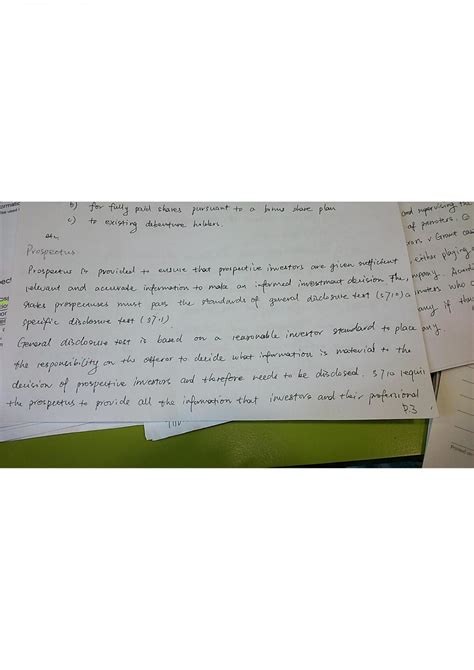 b) for fully paid shares pursuant to a bonus share plan
c) to existing debenture holders.
Prospectus
Prospectus is provided to ensure that prospective investors are given sufficient
relevant and accurate information to make an informed investment decision. The
states prospectuses must pass the standards of general disclosure test (s710) a
specific disclosure test (s711)
General disclosure test is based on a reasonable investor standard to place
the responsibility on the offeror to decide what information is material to the
decision of prospective investors and therefore needs to be disclosed. S710 requir
the prospectus to provide all the information that investors and their professional
P.3
and supervising
of promoters.
v Grant case
either playing
who
any if the